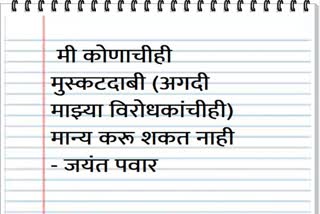 मी कोणाचीही
मुस्कटदाबी (अगदी
माझ्या विरोधकांचीही)
मान्य करू शकत नाही
- जयंत पवार